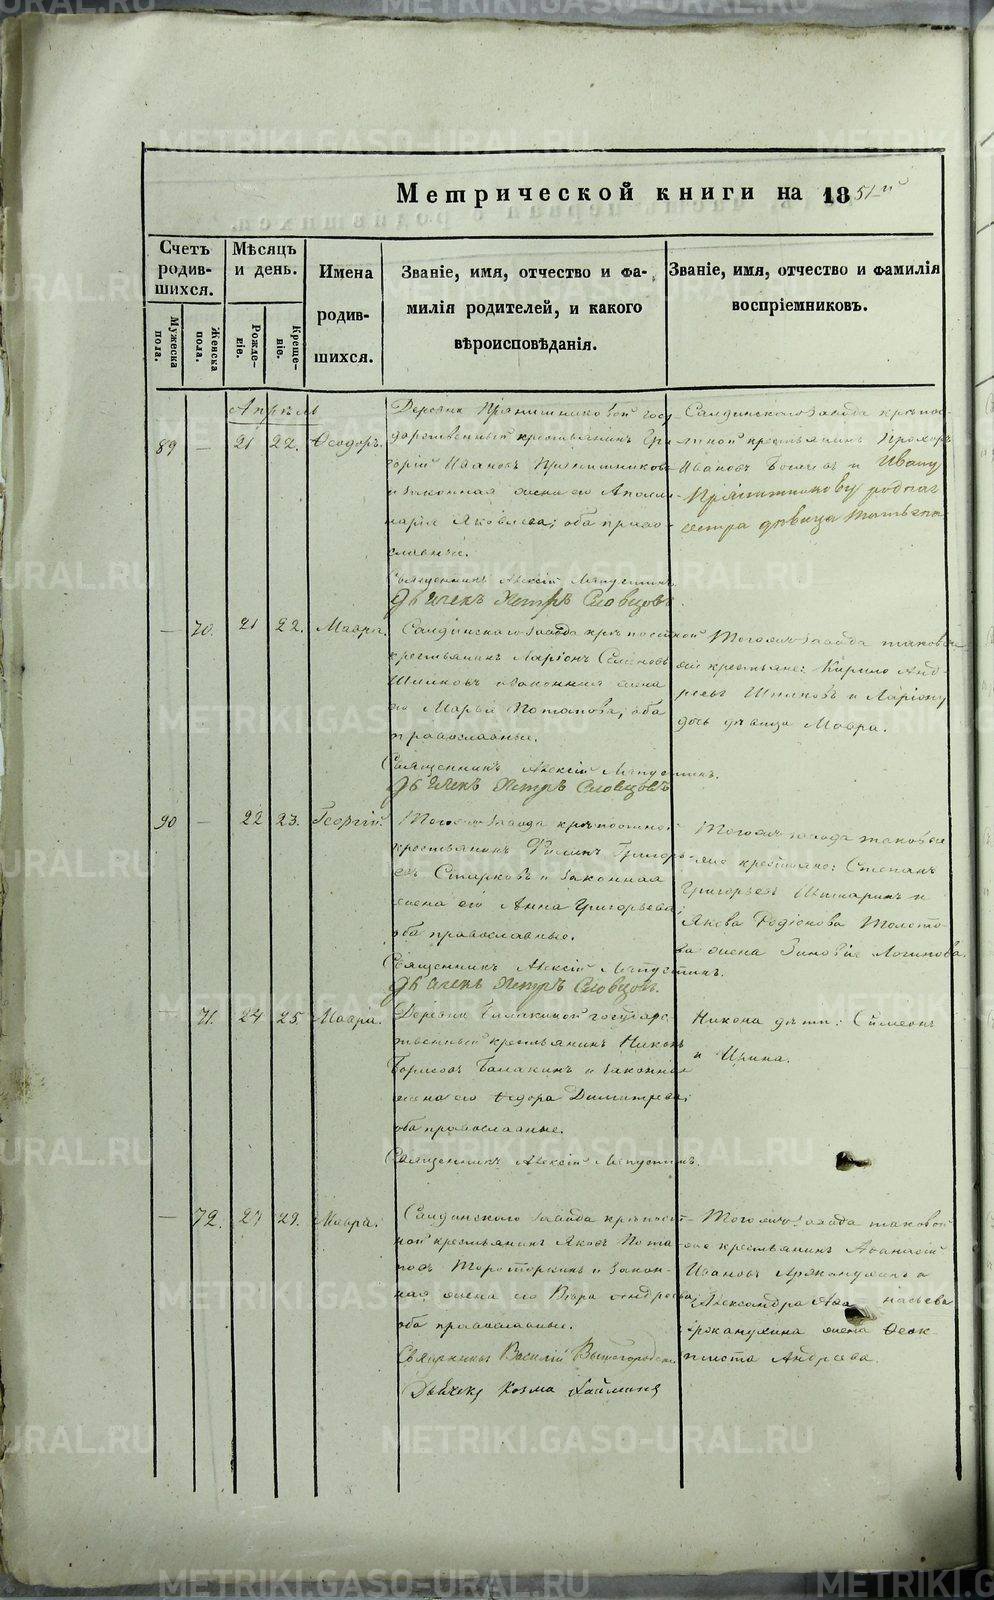 METRIKI.GASO-URAL.RU
Метрической книги на 1851й
Счетъ родившихся.
Мужеска пола.
Женска пола.
Мѣсяцъ и день.
Рожденіе.
Крещеніе.
Имена родившихся.
Званіе, имя, отчество и фамилія родителей, и какого вѣроисповѣданія.
Званіе, имя, отчество и фамилія воспріемниковъ.
Апрѣль
89 — 21 22. Ѳеодоръ.
Деревни Прянишниковой госу-
дарственный крестьянинъ Гри-
горій Ивановъ Прянишниковъ
и законная жена его Аполи-
нарія Яковлева; оба право-
славные.
Священникъ Алексій Ляпустинъ
Дьячекъ Петръ Словцовъ.
Салдинскаго завода крѣпос-
тной крестьянинъ Прохоръ
Ивановъ и Ивану
Прянишникову родная
сестра дѣвица Татьяна
— 70. 21 22. Мавра.
Салдинскаго завода крѣпостной
крестьянинъ Ларіонъ Семеновъ
Шпиковъ и законная жена
его Марья Потапова; оба
православные.
Священникъ Алексій Ляпустинъ.
Дьячекъ Петръ Словцовъ
Тогожъ завода таковые
же крестьяне: Кирило Анд-
реевъ Шпиковъ и Ларіону
дочь дѣвица Мавра.
90 — 22 23. Георгій.
Тогожъ завода крѣпостной
крестьянинъ Филипъ Григорь-
евъ Старковъ и законная
жена его Анна Григорьева;
оба православные.
Священникъ Алексій Ляпустинъ.
Дьячекъ Петръ Словцовъ.
Тогожъ завода таковые
же крестьяне: Степанъ
Григорьевъ и
Якова Родіонова Толсто-
ва жена Зиновія Логинова.
— 71. 24 25. Мавра.
Деревни Балакиной государс-
твенный крестьянинъ Никонъ
Борисовъ Балакинъ и законная
жена его Ѳедора Димитрева;
оба православные.
Священникъ Алексій Ляпустинъ.
Никона дѣти: Симеонъ
и Ирина.
— 72. 27 29. Мавра.
Салдинскаго завода крѣпост-
ной крестьянинъ Яковъ Пота-
повъ и закон-
ная жена его Вѣра Андреева;
оба православные.
Священникъ Василій
Дьячекъ Козма
Тогожъ завода таковой
же крестьянинъ Аѳанасій
Ивановъ и
Александра Аѳанасьева
жена Ѳеок-
тиста Андреева.